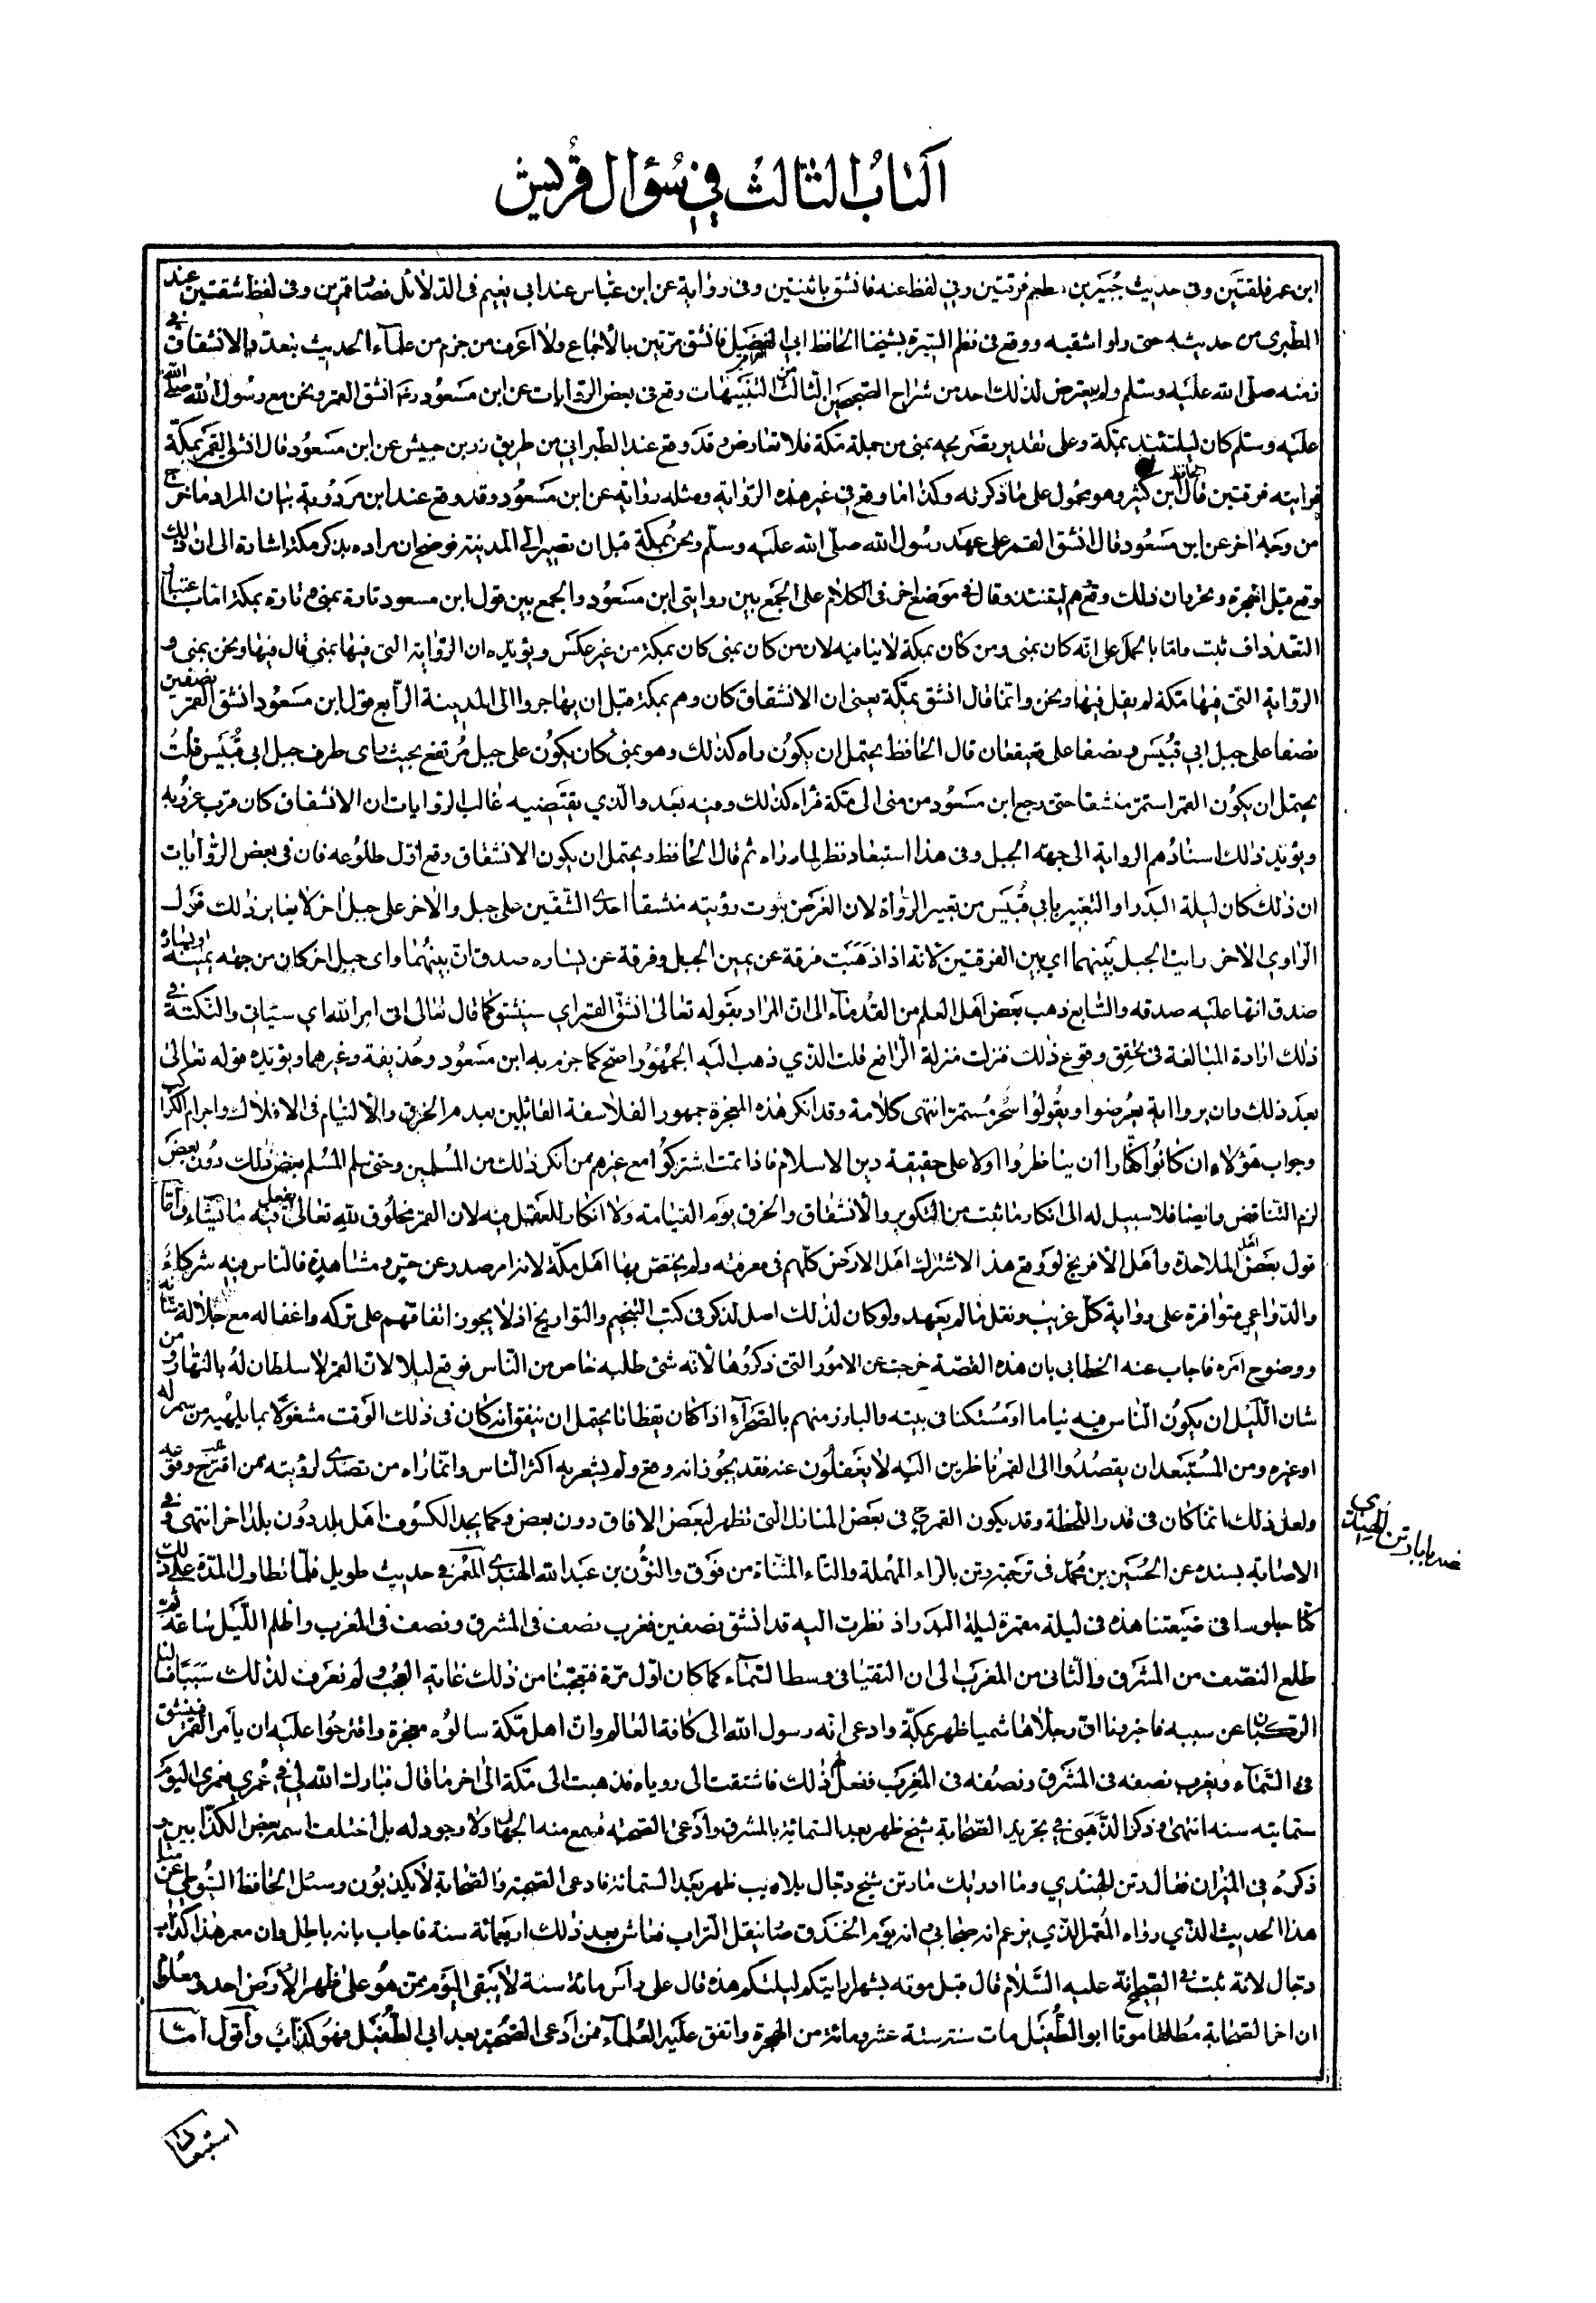 الباب الثالث في سؤال قريش
ابن عمر فلقتين وفى حديث جبير بن مطعم فرقتين وفي لفظ عنه فانشق باثنتين وفى رواية عن ابن عباس عند ابي نعيم في الدلائل فصار قمرين وفى لفظ شقتين عند
الطبرى من حديثه حتى راوا شقيه ووقع فى نظم السيرة لشيخنا الحافظ ابي الفضل فانشق مرتين بالاجماع ولا اعرف من جزم من علماء الحديث بتعدد الانشقاق في
زمنه صلى الله عليه وسلم ولم يتعرض لذلك احد من شراح الصحيحين الثالث من التنبيهات وقع فى بعض الروايات عن ابن مسعود رضه انشق القمر ونحن مع رسول الله صلى الله
عليه وسلم كان ليلتئذ بمكة وعلى تقدير تصريحه بمنى من جملة مكة فلا تعارض وقد وقع عند الطبراني من طريق زر بن حبيش عن ابن مسعود قال انشق القمر بمكة
فرايته فرقتين قال الحافظ ابن كثير وهو محمول على ما ذكرته وكذا ما وقع في غير هذه الرواية ومثله رواية عن ابن مسعود وقد وقع عند ابن مردوية بيان المراد فاخرج
من وجه اخر عن ابن مسعود قال انشق القمر على عهد رسول الله صلى الله عليه وسلم ونحن بمكة قبل ان نصير الى المدينة فوضح ان مراده بذكر مكة اشارة الى ان ذلك
وقع قبل الهجرة ويجوز ان ذلك وقع وهم ليلتئذ وقال في موضع اخر فى الكلام على الجمع بين روايتى ابن مسعود والجمع بين قول ابن مسعود تارة بمنى وتارة بمكة اما باعتبار
التعدد ان ثبت واما بالحمل على انه كان بمنى ومن كان بمكة لا ينافيه لان من كان بمنى كان بمكة من غير عكس ويؤيده ان الرواية التى فيها بمنى قال فيها ونحن بمنى و
الرواية التى فيها مكة لم يقل فيها ونحن وانما قال انشق بمكة يعنى ان الانشقاق كان وهم بمكة قبل ان يهاجروا الى المدينة الرابع قول ابن مسعود انشق القمر نصفين
نصفا على جبل ابي قبيس ونصفا على قعيقعان قال الحافظ يحتمل ان يكون راه كذلك وهو بمنى كان يكون على جبل مرتفع بحيث راى طرف جبل ابى قبيس قلت
يحتمل ان يكون القمر استمر منشقا حتى رجع ابن مسعود من منى الى مكة فراه كذلك وفيه بعد والذي يقتضيه غالب الروايات ان الانشقاق كان قرب غروبه
ويؤيد ذلك اسنادهم الرواية الى جهة الجبل وفى هذا استبعاد نظر لما رواه ثم قال الحافظ ويحتمل ان يكون الانشقاق وقع اول طلوعه فان فى بعض الروايات
ان ذلك كان ليلة البدر او التعبير بابي قبيس من تعبير الرواة لان الغرض ثبوت رؤيته منشقا احدى الشقتين على جبل والاخر على جبل اخر لا يغاير ذلك قول
الراوي الاخر رايت الجبل بينهما اي بين الفرقتين لانه اذا ذهبت فرقة عن يمين الجبل وفرقة عن يساره صدق ان بينهما واى جبل اخر كان من جهة يمينه او يساره
صدق انها عليه صدقه والسابع ذهب بعض اهل العلم من القدماء الى ان المراد بقوله تعالى انشق القمر اي سينشق كما قال تعالى اتى امر الله اي سياتي والنكتة في
ذلك ارادة المبالغة فى تحقق وقوع ذلك فنزلت منزلة الواقع قلت الذي ذهب اليه الجمهور اصح كما جزم به ابن مسعود وحذيفة وغيرهما ويؤيده قوله تعالى
بعد ذلك وان يروا اية يعرضوا ويقولوا سحر مستمر انتهى كلامه وقد انكر هذه المعجزة جمهور الفلاسفة القائلين بعدم الخرق والالتيام فى الافلاك واجرام الكواكب
وجواب هؤلاء ان كانوا كفارا ان يناظروا اولا على حقيقة دين الاسلام فاذا تمت اشتركوا مع غيرهم ممن انكر ذلك من المسلمين وحتى سلم المسلم بعض ذلك دون بعض
لزم التناقض وايضا فلا سبيل له الى انكار ما ثبت من التكوير والانشقاق والخرق يوم القيامة ولا انكار للعقل فيه لان القمر مخلوق لله تعالى يفعل فيه ما يشاء واما
قول بعض اهل الملاحدة واهل الافرنج لو وقع هذا لاشترك اهل الارض كلهم فى معرفته ولم يختص بها اهل مكة لانه امر صدر عن حس ومشاهدة فالناس فيه شركاء
والدواعي متوافرة على رواية كل غريب ونقل ما لم يعهد ولو كان لذلك اصل لذكر فى كتب التنجيم والتواريخ اذ لا يجوز اتفاقهم على تركه واغفاله مع جلالة شانه
ووضوح امره فاجاب عنه الخطابي بان هذه القصة خرجت عن الامور التى ذكروها لانه شئ طلبه خاص من الناس فوقع ليلا لان القمر لا سلطان له بالنهار ومن
شان الليل ان يكون الناس فيه نياما او مستكنا فى بيته والبارز منهم بالصحراء اذا كان يقظانا يحتمل ان يتفق انه كان فى ذلك الوقت مشغولا بما يلهيه من سمر له
او غيره ومن المستبعد ان يقصدوا الى القمر ناظرين اليه لا يغفلون عنه فقد يجوز انه وقع ولم يشعر به اكثر الناس وانما راه من تصدى لرؤيته ممن اقترح وقوعه
ولعل ذلك انما كان فى قدر اللحظة وقد يكون القمر ح فى بعض المنازل التى تظهر لبعض الافاق دون بعض وكما يجد الكسوف اهل بلد دون بلد اخر انتهى وفى
الاصابة بسنده عن الحسين بن محمد فى ترجمة رتن بالراء المهملة والتاء المثناة من فوق والنون بن عبد الله الهندى المعمر فى حديث طويل فلما تطاول المدة على ذلك
كنا جلوسا فى ضيعتنا هذه فى ليلة مقمرة ليلة البدر اذ نظرت اليه قد انشق نصفين فغرب نصف فى المشرق ونصف فى المغرب واظلم الليل ساعة ثم
طلع النصف من المشرق والثانى من المغرب الى ان التقيا فى وسط السماء كما كان اول مرة فتعجبنا من ذلك غاية العجب ولم نعرف لذلك سببا فسالنا
الركبان عن سببه فاخبرونا ان رجلا هاشميا ظهر بمكة وادعى انه رسول الله الى كافة العالم وان اهل مكة سالوه معجزة واقترحوا عليه ان يأمر القمر فينشق
فى السماء ويغرب نصفه فى المشرق ونصفه فى المغرب ففعل لهم ذلك فاشتقت الى روياه فذهبت الى مكة الى اخر ما قال فبارك الله لي في عمري فعمرى اليوم
ستمايته سنه انتهى وذكر الذهبى في تجريد الصحابة شيخ ظهر بعد الستمائة بالمشرق وادعى الصحبة فسمع منه الجهال ولا وجود له بل اختلق اسمه بعض الكذابين و
ذكره في الميزان فقال رتن الهندي وما ادريك ما رتن شيخ دجال بلا ريب ظهر بعد الستمائة فادعى الصحبة والصحابة لا يكذبون وسئل الحافظ السيوطي عن
هذا الحديث الذي رواه المعمر الذي يزعم انه صحابي وانه يوم الخندق صار ينقل التراب فعاش بعد ذلك اربعمائة سنة فاجاب بانه باطل وان معمر هذا كذاب
دجال لانه ثبت في الصحيح انه عليه السلام قال قبل موته بشهر ارايتكم ليلتكم هذه قال على راس مائة سنة لا يبقى اليوم ممن هو على ظهر الارض احد ومعلوم
ان اخر الصحابة مطلقا موتا ابو الطفيل مات سنة ستة عشر ومائة من الهجرة واتفق عليه العلماء فمن ادعى الصحبة بعد ابي الطفيل فهو كذاب واقول اما
استبعاد